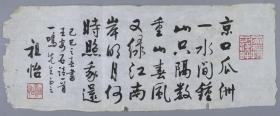 京口瓜洲
一水間鍾
山只隔數
重山春風
又綠江南
岸明月何
時照我還
己巳之春書
王安石詩一首
一鳴先生正之
祖怡